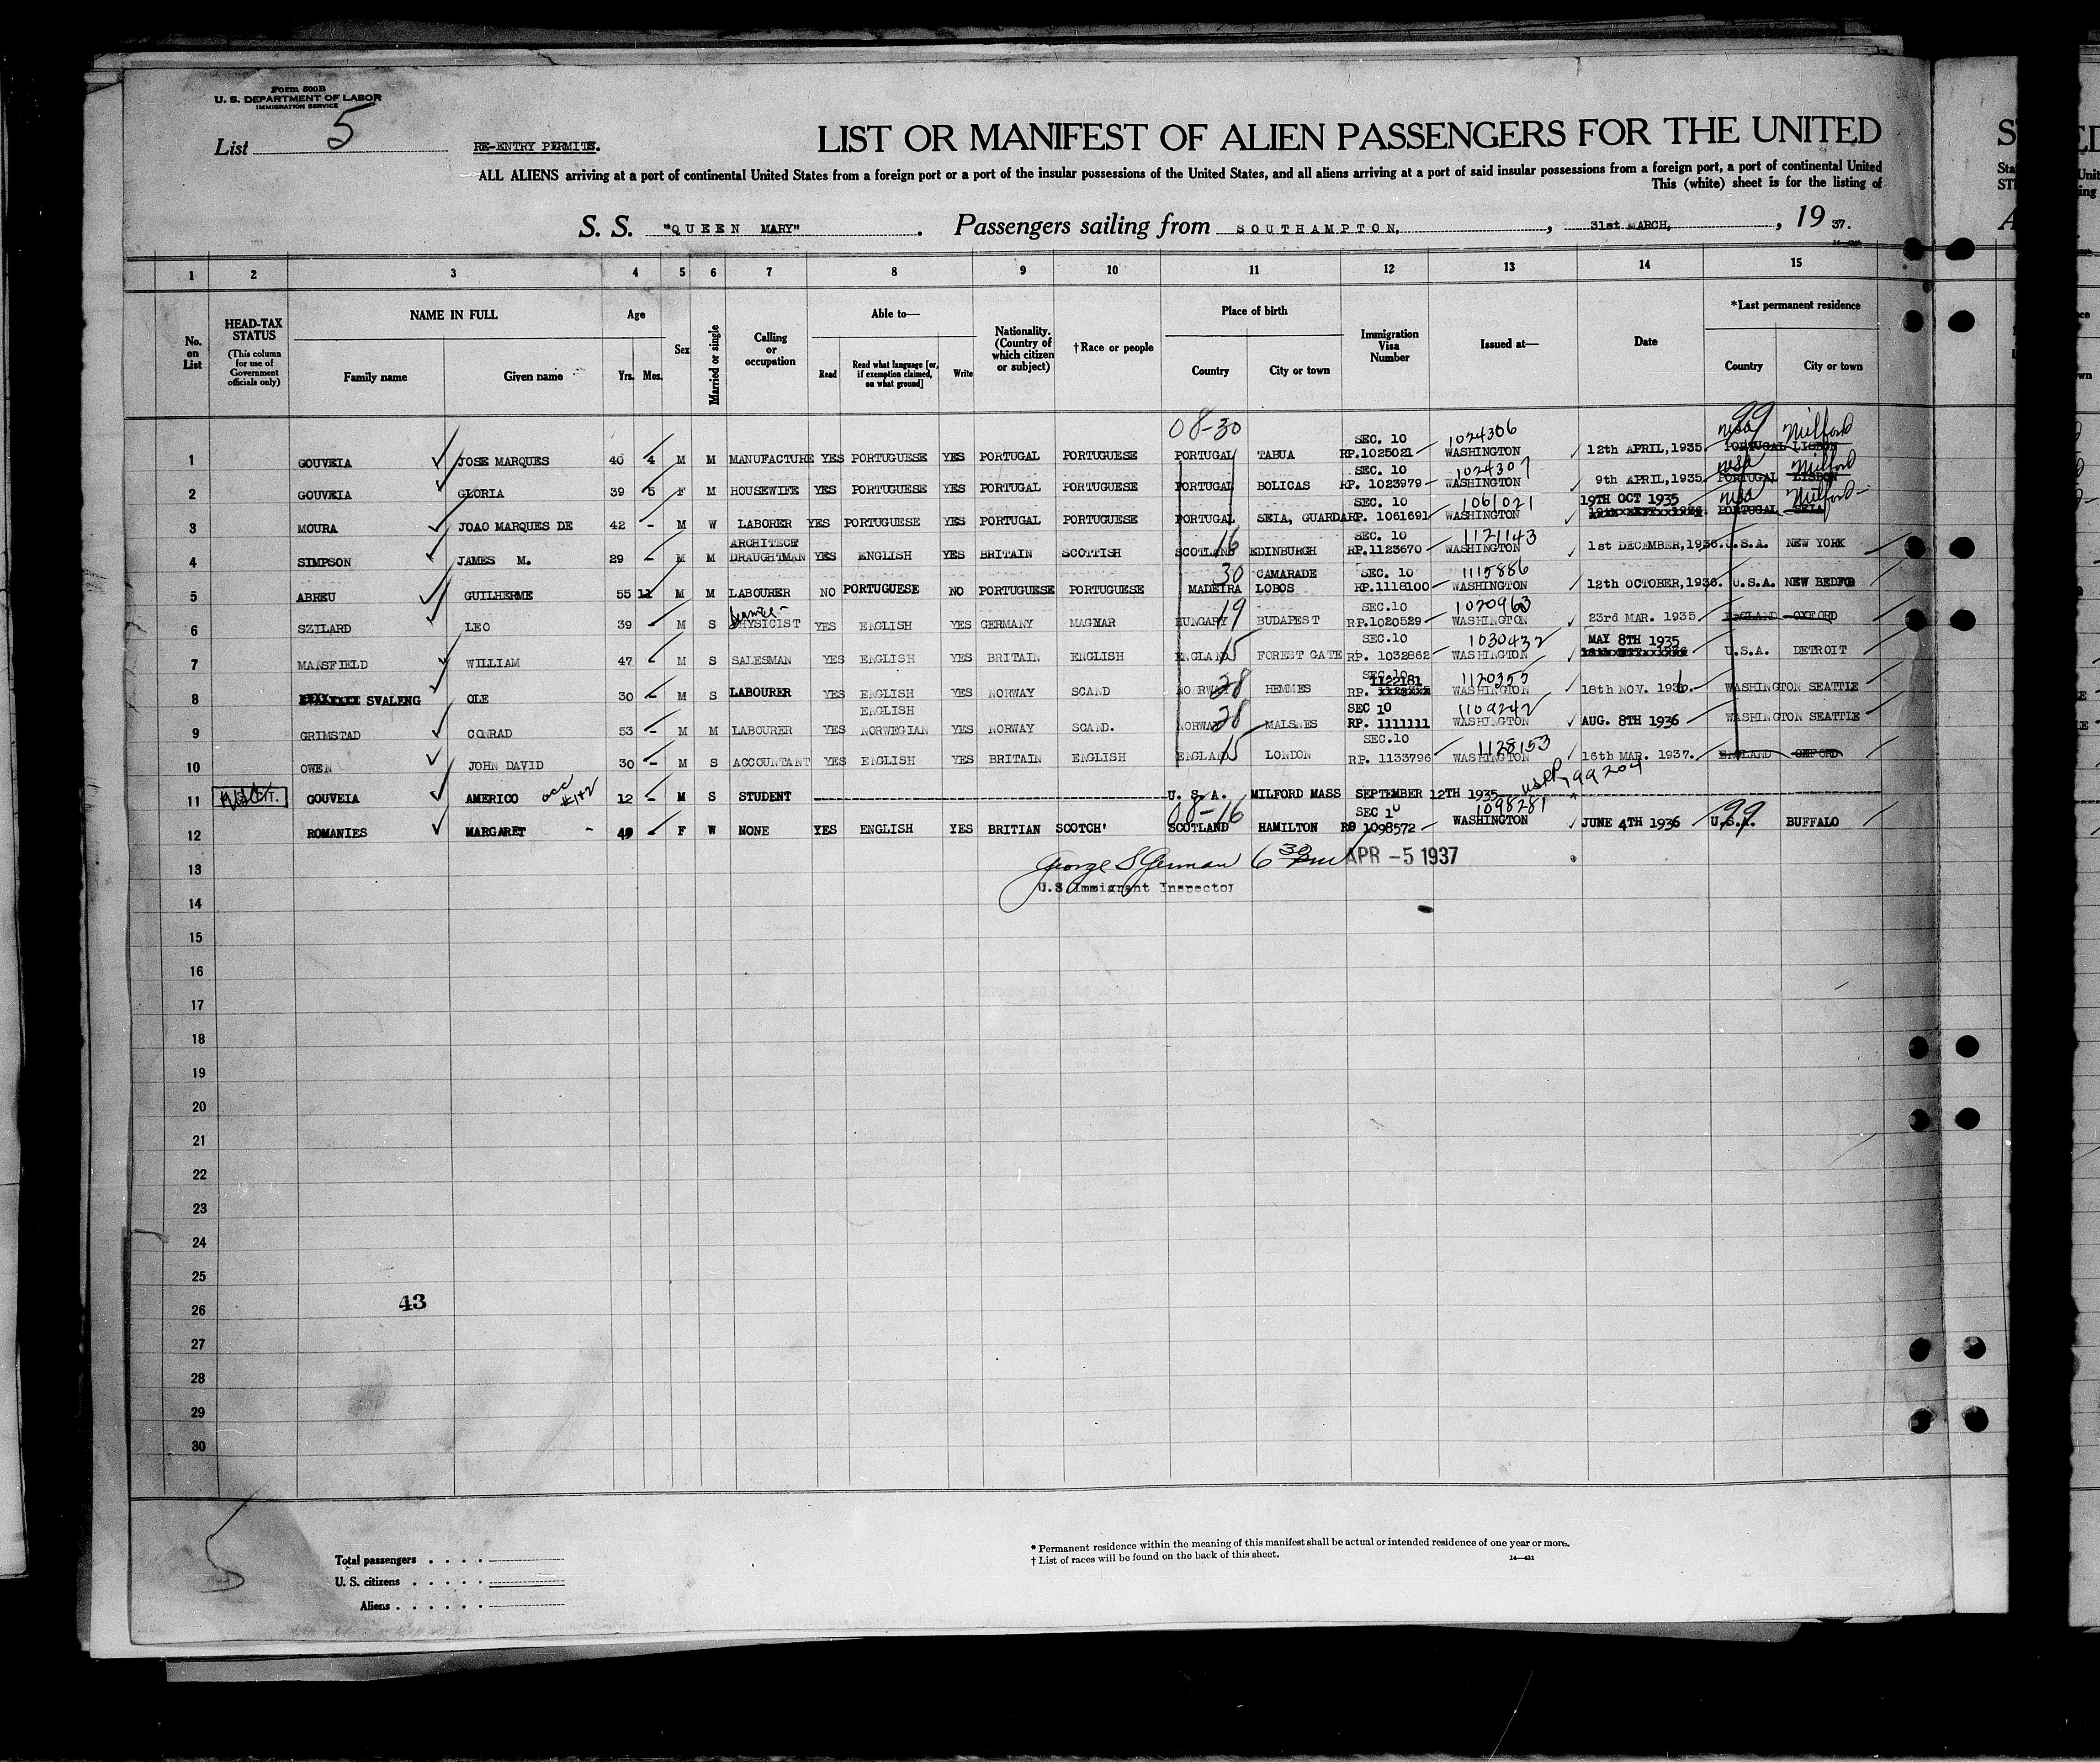 Form 500B
U. S. DEPARTMENT OF LABOR
IMMIGRATION SERVICE
List 5
RE-ENTRY PERMITS.
LIST OR MANIFEST OF ALIEN PASSENGERS FOR THE UNITED
ALL ALIENS arriving at a port of continental United States from a foreign port or a port of the insular possessions of the United States, and all aliens arriving at a port of said insular possessions from a foreign port, a port of continental United
This (white) sheet is for the listing of
S. S. "QUEEN MARY" . Passengers sailing from SOUTHAMPTON, , 31st MARCH, , 19 37.
1 2 3 4 5 6 7 8 9 10 11 12 13 14 15
No. on List
HEAD-TAX STATUS (This column for use of Government officials only)
NAME IN FULL
Family name Given name
Age
Yrs. Mos.
Sex
Married or single
Calling or occupation
Able to—
Read Read what language [or, if exemption claimed, on what ground] Write
Nationality. (Country of which citizen or subject)
†Race or people
Place of birth
Country City or town
Immigration Visa Number
Issued at—
Date
*Last permanent residence
Country City or town
08-30 99
SEC. 10 1024306 Milford
1 GOUVEIA JOSE MARQUES 40 4 M M MANUFACTURE YES PORTUGUESE YES PORTUGAL PORTUGUESE PORTUGAL TABUA RP.1025021 WASHINGTON 12th APRIL,1935 PORTUGAL LISBON
SEC. 10 1024307 Milford
2 GOUVEIA GLORIA 39 5 F M HOUSEWIFE YES PORTUGUESE YES PORTUGAL PORTUGUESE PORTUGAL BOLICAS RP. 1023979 WASHINGTON 9th APRIL,1935 PORTUGAL LISBON
SEC. 10 1061021 19TH OCT 1935 Milford
3 MOURA JOAO MARQUES DE 42 - M W LABORER YES PORTUGUESE YES PORTUGAL PORTUGUESE PORTUGAL SEIA, GUARDA RP. 1061691 WASHINGTON PORTUGAL SEIA
ARCHITECT 16 SEC. 10 1121143
4 SIMPSON JAMES M. 29 - M M DRAUGHTMAN YES ENGLISH YES BRITAIN SCOTTISH SCOTLAND EDINBURGH RP.1123670 WASHINGTON 1st DECEMBER,1936. U.S.A. NEW YORK
30 CAMARADE SEC. 10 1115886
5 ABREU GUILHERME 55 11 M M LABOURER NO PORTUGUESE NO PORTUGUESE PORTUGUESE MADEIRA LOBOS RP.1118100 WASHINGTON 12th OCTOBER,1936. U.S.A. NEW BEDFO
19 SEC.10 1020963
6 SZILARD LEO 39 - M S PHYSICIST YES ENGLISH YES GERMANY MAGYAR HUNGARY BUDAPEST RP.1020529 WASHINGTON 23rd MAR. 1935 ENGLAND OXFORD
15 SEC.10 1030432 MAY 8TH 1935
7 MANSFIELD WILLIAM 47 - M S SALESMAN YES ENGLISH YES BRITAIN ENGLISH ENGLAND FOREST GATE RP. 1032862 WASHINGTON U.S.A. DETROIT
28 SEC.10 1122181 1120255
8 SVALENG OLE 30 - M S LABOURER YES ENGLISH YES NORWAY SCAND NORWAY HEMMES RP. WASHINGTON 18th NOV. 1936. WASHINGTON SEATTLE
ENGLISH 28 SEC 10 1109242
9 GRIMSTAD CONRAD 53 - M M LABOURER YES NORWEGIAN YES NORWAY SCAND. NORWAY MALSNES RP. 1111111 WASHINGTON AUG. 8TH 1936 WASHINGTON SEATTLE
15 SEC.10 1128153
10 OWEN JOHN DAVID 30 - M S ACCOUNTANT YES ENGLISH YES BRITAIN ENGLISH ENGLAND LONDON RP. 1133796 WASHINGTON 16th MAR. 1937. ENGLAND OXFORD
11 GOUVEIA AMERICO acc #1+2 12 - M S STUDENT U. S. A. MILFORD MASS SEPTEMBER 12TH 1935 USRP 199204
08-16 SEC 10 1098281 99
12 ROMANIES MARGARET - 49 - F W NONE YES ENGLISH YES BRITIAN SCOTCH' SCOTLAND HAMILTON RP 1098572 WASHINGTON JUNE 4TH 1936 U.S.A. BUFFALO
13 George S German 6 30 pm APR -5 1937
U.S Immigrant Inspector
14
15
16
17
18
19
20
21
22
23
24
25
26
43
27
28
29
30
5
Total passengers
U. S. citizens
Aliens
* Permanent residence within the meaning of this manifest shall be actual or intended residence of one year or more.
† List of races will be found on the back of this sheet.
14—431